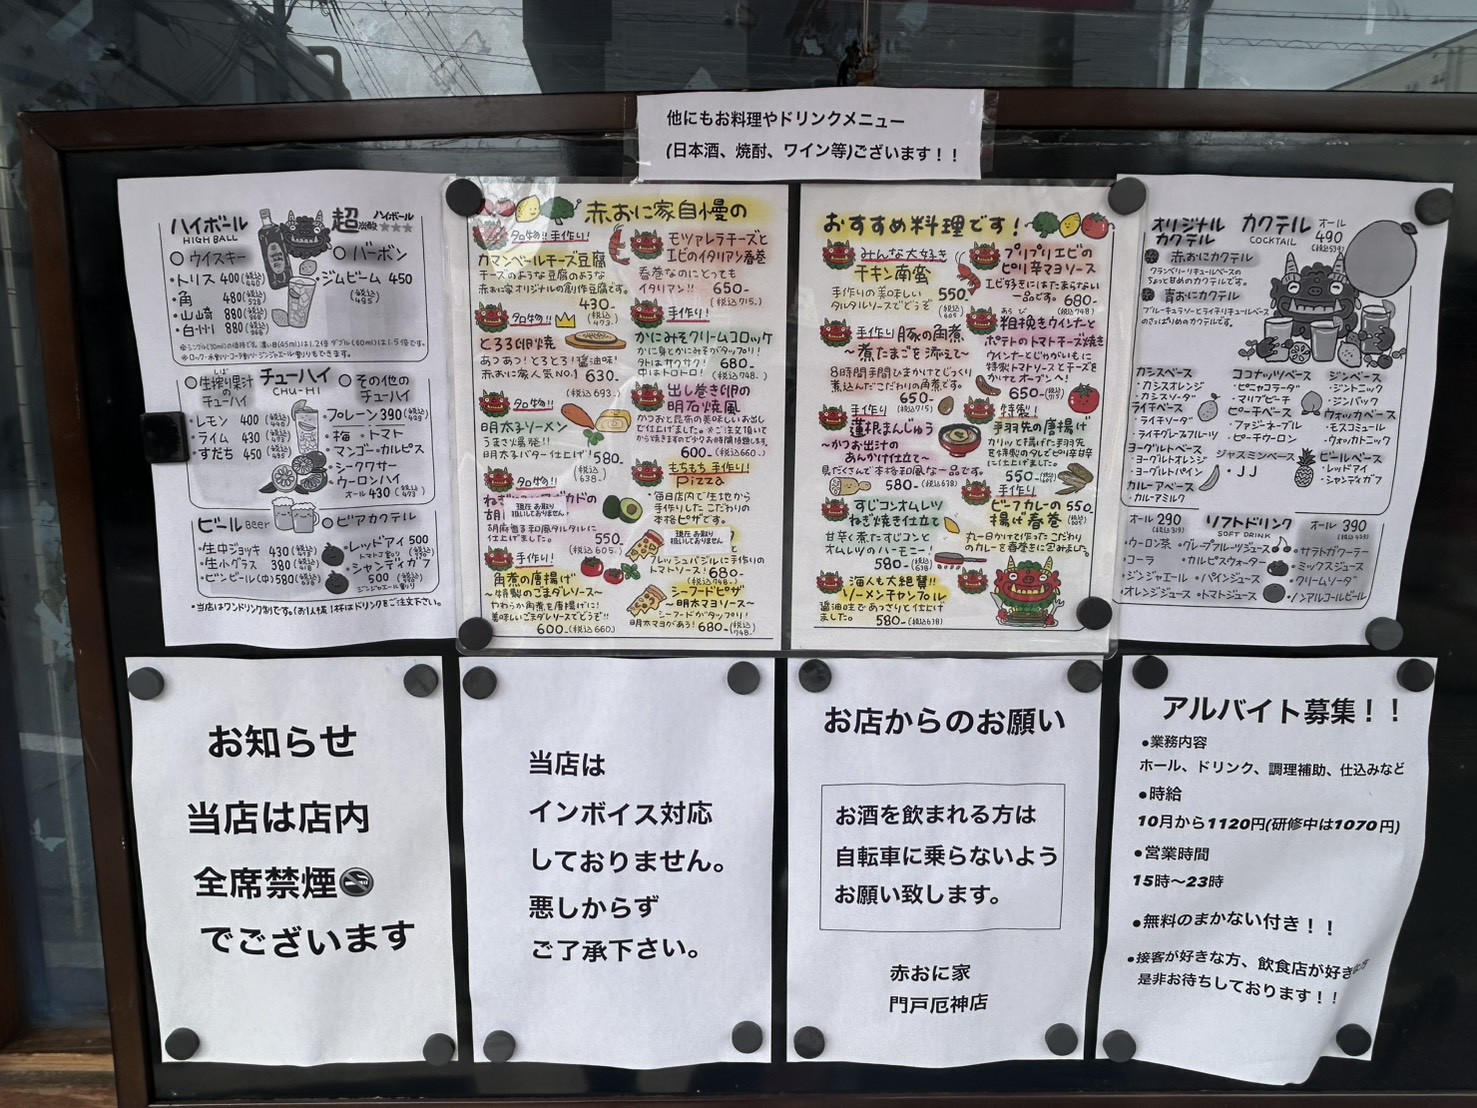 他にもお料理やドリンクメニュー
(日本酒、焼酎、ワイン等)ございます！！
ハイボール
HIGH BALL
超炭酸 ハイボール
★★★
ウイスキー
・トリス 400(税込440)
・角 480(税込528)
・山崎 880(税込968)
・白州 880(税込968)
バーボン
ジムビーム 450
(税込495)
※シングル(30ml)の価格です。濃い目(45ml)は1.2倍 ダブル(60ml)は1.5倍です。
※ロック・水割り・コーラ割り・ジンジャエール割りもできます。
チューハイ
CHU-HI
生搾り果汁のチューハイ
・レモン 400(税込440)
・ライム 430(税込473)
・すだち 450(税込495)
その他のチューハイ
・プレーン 390(税込429)
・梅 ・トマト
・マンゴー・カルピス
・シークワサー
・ウーロンハイ
オール 430(税込473)
ビール Beer
・生中ジョッキ 430(税込473)
・生小グラス 380(税込418)
・ビンビール(中)580(税込638)
ビアカクテル
・レッドアイ 500
トマトジュース割り(税込550)
・シャンディガフ
500(税込550)
ジンジャエール割り
*当店はワンドリンク制です。(お1人様1杯はドリンクをご注文下さい。
赤おに家自慢の
名物!! 手作り!
カマンベールチーズ豆腐
チーズのような豆腐のような
赤おに家オリジナルの創作豆腐です。
430-
(税込473-
名物!!
とろろ卵焼
あつあつ!とろとろ!醤油味!
赤おに家人気NO.1 630-
(税込693-
名物!!
明太子ソーメン
うまさ爆発!!
明太子バター仕上げ! 580-
(税込638-
名物!!
現在お取り扱いしておりません。
胡麻香る和風タルタルに
仕上げました。 550-
(税込605-
手作り!
角煮の唐揚げ
～特製のごまダレソース～
やわらか角煮を唐揚げに!
美味しいごまダレソースでどうぞ!!
600-(税込660)
モツァレラチーズと
エビのイタリアン春巻
春巻なのにとっても
イタリアン!! 650-
(税込715.)
手作り!
かにみそクリームコロッケ
かに身とかにみそがタップリ!
外はサクサク! 680-
中はトロトロ! (税込748.)
出し巻き卵の
明石焼風
かつおと昆布の美味しいお出し
で仕上げました。※ご注文頂いて
から焼きますので少々お時間頂戴します。
600-(税込660.)
もちもち 手作り!
Pizza
・毎日店内で生地から
手作りしたこだわりの
本格ピザです。
現在お取り扱いしておりません
フレッシュバジルに手作りの
トマトソース! 680-
(税込748-
シーフードピザ
～明太マヨソース～
シーフードがタップリ!
明太マヨがあう! 680-(税込748.
おすすめ料理です!
みんな大好き
チキン南蛮
手作りの美味しい 550
タルタルソースでどうぞ (税込605)
手作り 豚の角煮
～煮たまごを添えて～
8時間手間ひまかけてじっくり
煮込んだこだわりの角煮です。
650-(税込715)
手作り
蓮根まんじゅう
～かつお出汁の
あんかけ仕立て～
具だくさんで本格和風な一品です。
580-(税込638)
すじコンオムレツ
ねぎ焼き仕立て
甘辛く煮たすじコンと
オムレツのハーモニー!
580-(税込638
海人も大絶賛!!
ソーメンチャンプル
醤油味であっさりと仕上げ
ました。 580-(税込638)
プリプリエビの
ピリ辛マヨソース
エビ好きにはたまらない
一品です。 680-
(税込748)
粗挽きウインナーと
ポテトのトマトチーズ焼き
ウインナーとじゃがいもに
特製トマトソースとチーズを
かけてオーブンへ!
650-(税込715)
特製!
手羽先の唐揚げ
カリッと揚げた手羽先
を特製のタレでピリ辛甘辛
に仕上げました。
550-(税込605)
手作り
ビーフカレーの 550-
揚げ春巻 (税込605)
丸一日かけて仕込んだこだわり
のカレーを春巻に包みました。
オリジナルカクテル
カクテル
COCKTAIL
オール
490
(税込539)
赤おにカクテル
クランベリーリキュールベースの
ちょっと甘めのカクテルです。
青おにカクテル
ブルーキュラソーとライチリキュールベース
のさっぱりめのカクテルです。
カシスベース
・カシスオレンジ
・カシスソーダ
ライチベース
・ライチソーダ
・ライチグレープフルーツ
ヨーグルトベース
・ヨーグルトオレンジ
・ヨーグルトパイン
カルーアベース
・カルーアミルク
ココナッツベース
・ピニャコラーダ
・マリブピーチ
ピーチベース
・ファジーネーブル
・ピーチウーロン
ジャスミンベース
・JJ
ジンベース
・ジントニック
・ジンバック
ウォッカベース
・モスコミュール
・ウォッカトニック
ビールベース
・レッドアイ
・シャンディガフ
オール 290
(税込319)
ソフトドリンク
SOFT DRINK
オール 390
(税込429)
・ウーロン茶 ・グレープフルーツジュース
・コーラ ・カルピスウォーター
・ジンジャエール ・パインジュース
・オレンジジュース ・トマトジュース
・サラトガクーラー
・ミックスジュース
・クリームソーダ
・ノンアルコールビール
お知らせ
当店は店内
全席禁煙
でございます
当店は
インボイス対応
しておりません。
悪しからず
ご了承下さい。
お店からのお願い
お酒を飲まれる方は
自転車に乗らないよう
お願い致します。
赤おに家
門戸厄神店
アルバイト募集！！
●業務内容
ホール、ドリンク、調理補助、仕込みなど
●時給
10月から1120円(研修中は1070円)
●営業時間
15時〜23時
●無料のまかない付き！！
●接客が好きな方、飲食店が好きな方
是非お待ちしております！！